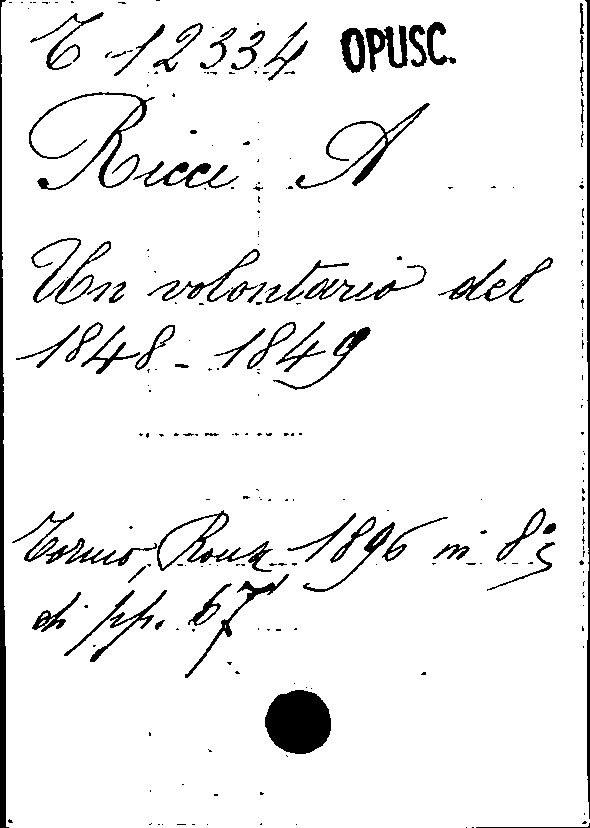 C 12334 OPUSC.
Ricci A
Un volontario del
1848-1849
Torino, Roux 1896 in 8°;
di pp. 67